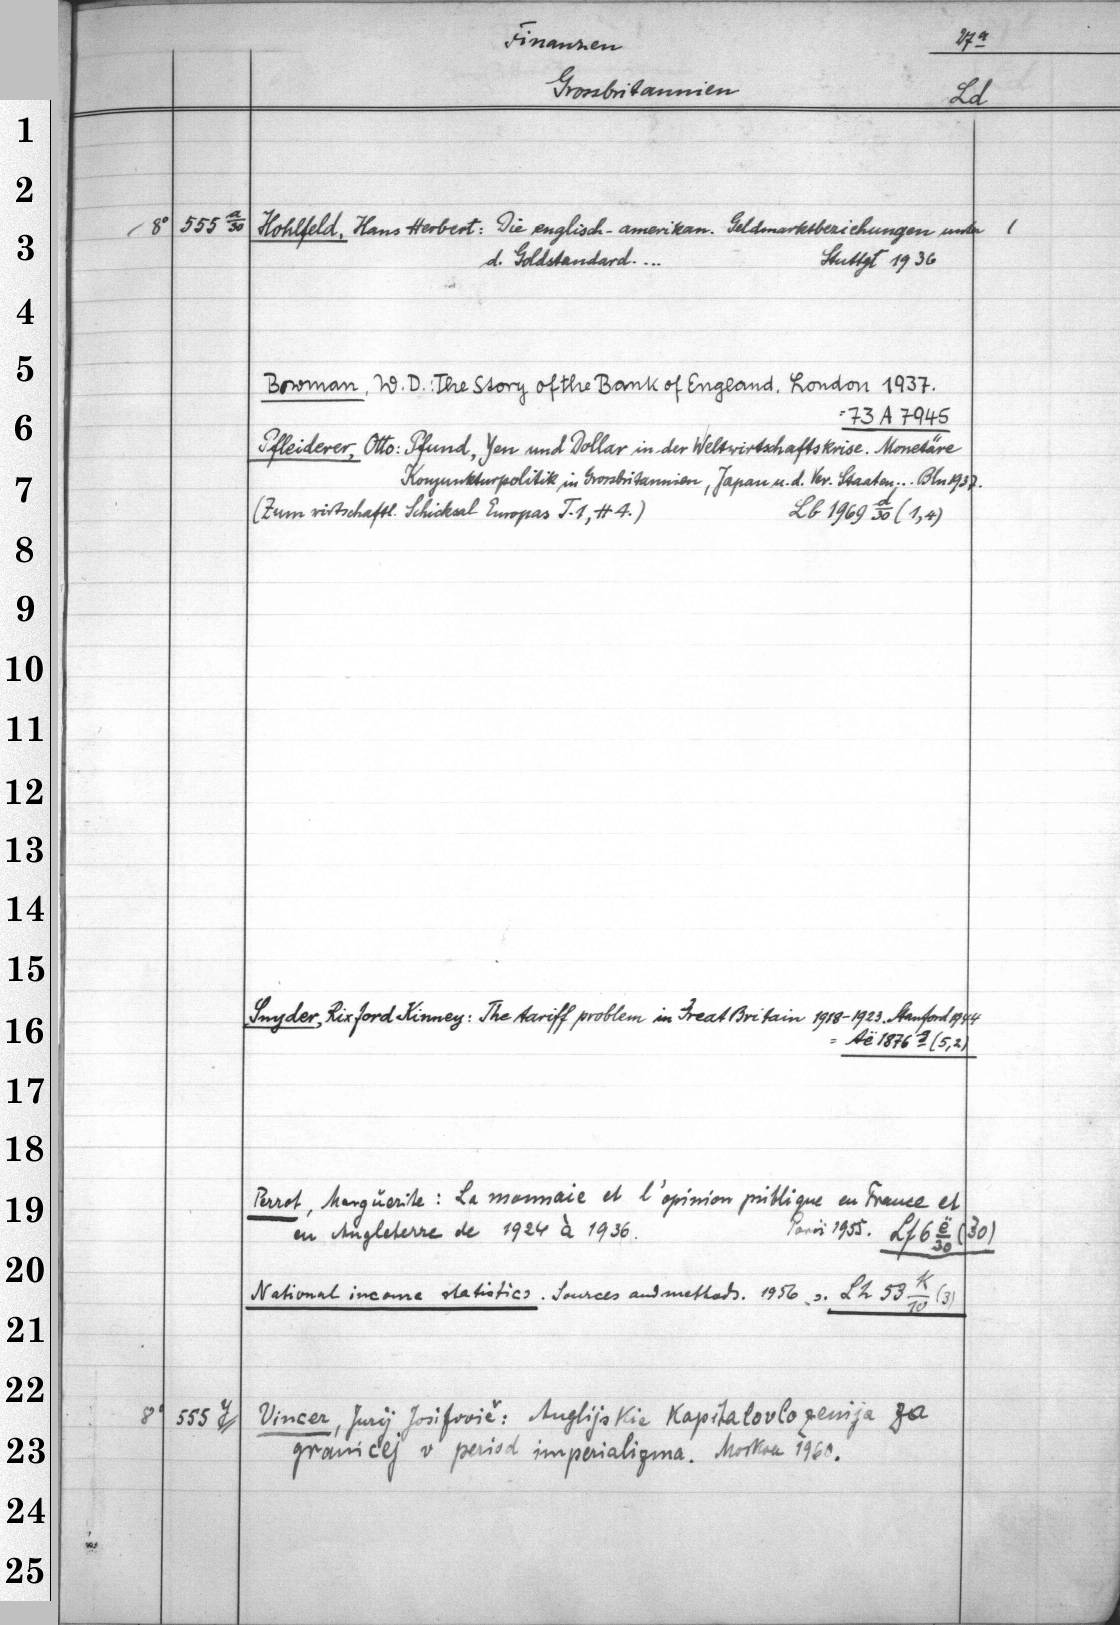 Finanzen 27ᵃ
Grossbritannien Ld
1
2
8° 555 a/30 Hohlfeld, Hans Herbert: Die englisch-amerikan. Geldmarktbeziehungen unter
3
d. Goldstandard. ... Stuttgt 1936
4
5
Bowman, W. D.: The Story of the Bank of England. London 1937.
= 73 A 7945
6
Pfleiderer, Otto: Pfund, Yen und Dollar in der Weltwirtschaftskrise. Monetäre
7
Konjunkturpolitik in Grossbritannien, Japan u. d. Ver. Staaten... Bln 1937.
(Zum wirtschaftl. Schicksal Europas T. 1, H 4.) Lb 1969 d/30 (1,4)
8
9
10
11
12
13
14
15
Snyder, Rixford Kinney: The tariff problem in Great Britain 1918-1923. Stanford 1944
16
= Aë 1876 (5,2)
17
18
Perrot, Marguerite: La monnaie et l'opinion publique en France et
19
en Angleterre de 1924 à 1936. Paris 1955. Lf 6 ë/30 (30)
20
National income statistics. Sources and methods. 1956 s. Lh 53 K/10 (3)
21
22
8° 555 y Vincer, Jurij Josifovič: Anglijskie kapitalovloženija za
23
granicej v period imperializma. Moskva 1960.
24
25